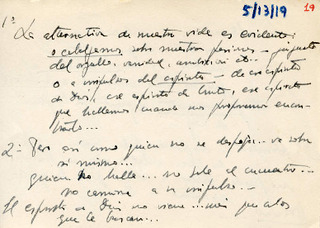 5/13/19
19
1º
La alternativa de nuestra vida es evidente:
o cabalgamos sobre nuestras pasiones - 
del orgullo, vanidad, ambición etc..
o a impulsos del espíritu - de ese espíritu
de Dios, ese espíritu de Cristo, ese espíritu
que hallamos cuando nos proponemos encon-
trarlo...
2º- Pero así como quien no se despoja.. va sobre
sí mismo...
quien no halla... no sale al encuentro...
no camina a su impulso..-
El espíritu de Dios no viene... a los
que le buscan...